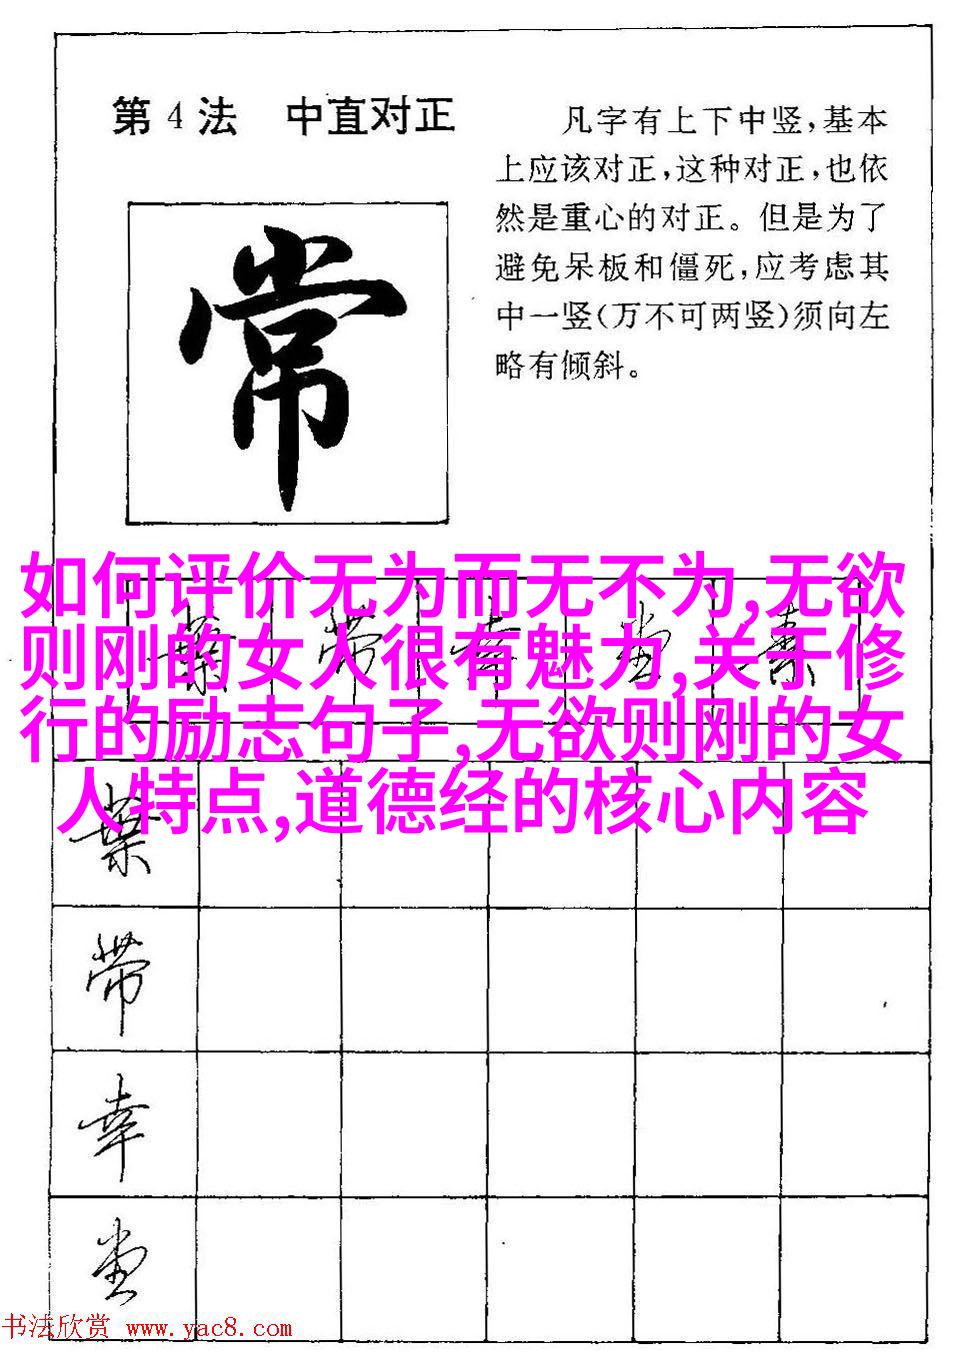 第4法 中直对正
凡字有上下中竖,基本
上应该对正,这种对正,也依
然是重心的对正。但是为了
避免呆板和僵死,应考虑其
中一竖(万不可两竖)须向左
略有倾斜。
常
如何评价无为而无不为,无欲
则刚的女人很有魅力,关于修
行的励志句子,无欲则刚的女
人特点,道德经的核心内容
带 幸 堂 素
带
幸
堂
书法欣赏 www.yac8.com